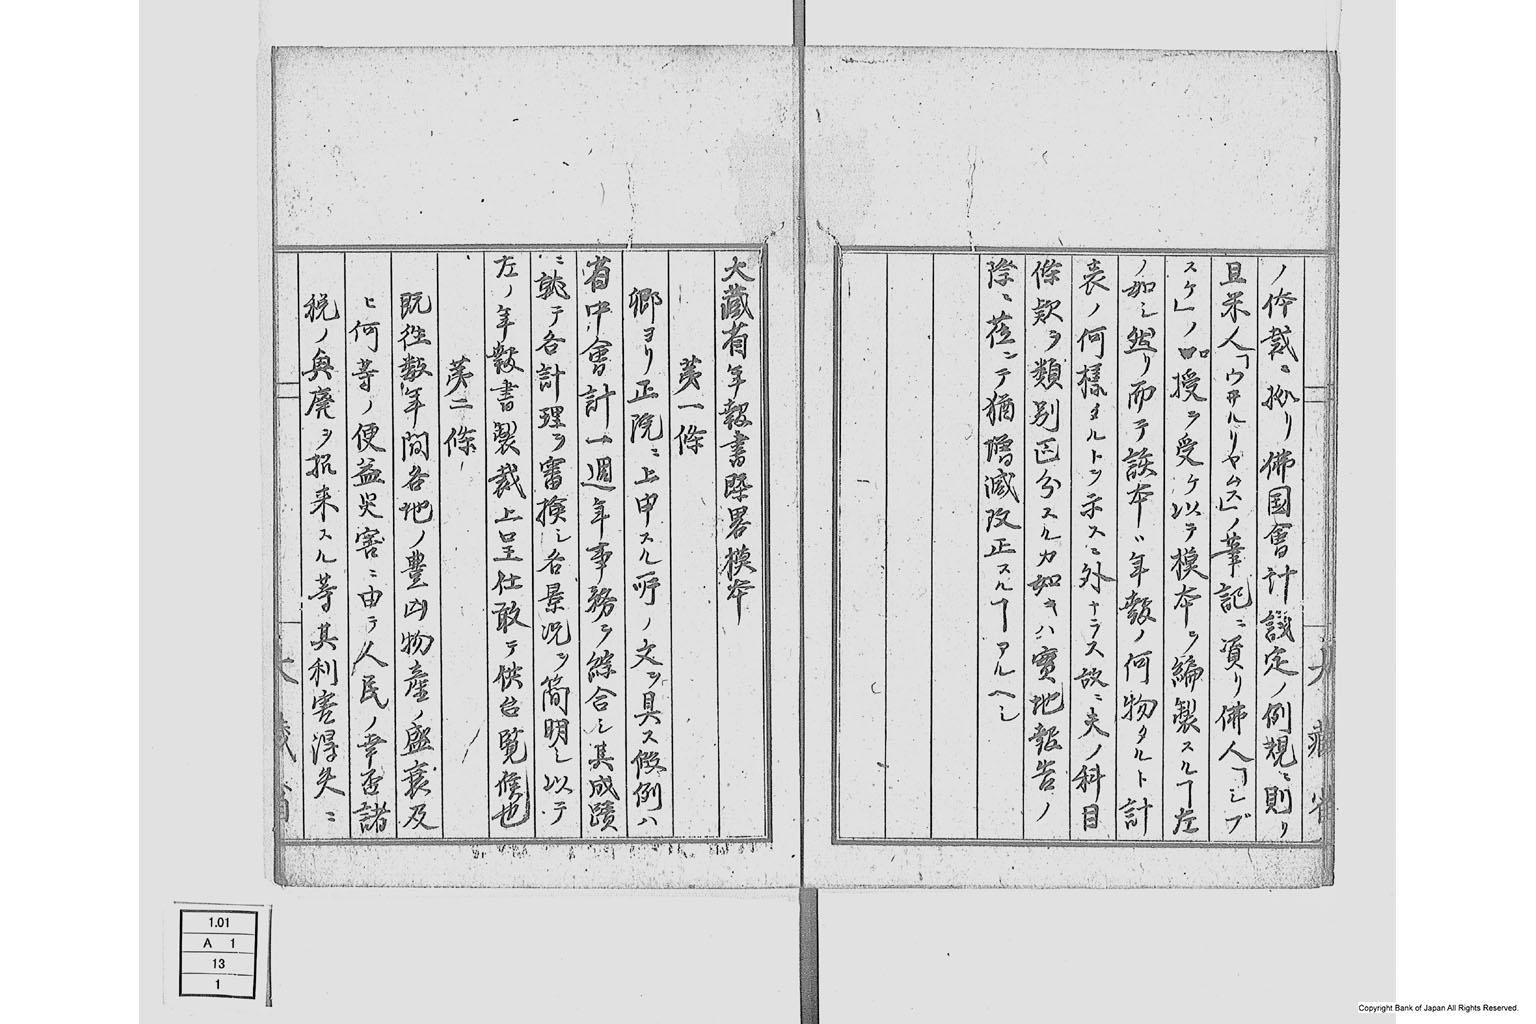 ノ体裁ニ拠リ佛國會計議定ノ例規ニ則リ
且米人「ウヰルリヤムス」ノ筆記ニ資リ佛人「シブ
スケ」ノ口授ヲ受ケ以テ模本ヲ編製スルヿ左
ノ如シ然リ而テ該本ハ年報ノ何物タルト計
表ノ何様タルトヲ示スニ外ナラス故ニ夫ノ科目
條款ヲ類別区分スルカ如キハ實地報告ノ
際ニ莅ンテ猶増減改正スルヿアルヘシ
大藏省
大藏省年報書概畧模本
第一條
卿ヨリ正院ニ上申スル所ノ文ヲ具ス假例ハ
省中會計一週年事務ヲ綜合シ其成蹟
ニ就テ各計理ヲ審按シ各景况ヲ簡明シ以テ
左ノ年報書製裁上呈仕敢テ供台覧候也
第二條
既往数年間各地ノ豊凶物産ノ盛衰及
ヒ何等ノ便益災害ニ由テ人民ノ幸否諸
税ノ興廃ヲ招来スル等其利害得失ニ
大藏省
1.01
A 1
13
1
Copyright Bank of Japan All Rights Reserved.